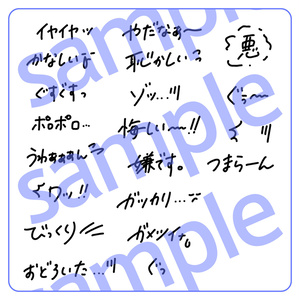 イヤイヤッ
かなしい
ぐすすすっ
ポロポロ…
うわぁぁぁん
くワッ!!
びっくり
おどろいた…ッ
やだなぁ〜
恥じかしいっ
ゾッ…ッ
悔しい〜!!
嫌です。
ガッカリ…
ガメツイナ。
ぐっ
悪
ぐっ〜
くッ
つまらーん
sample
sample
sample